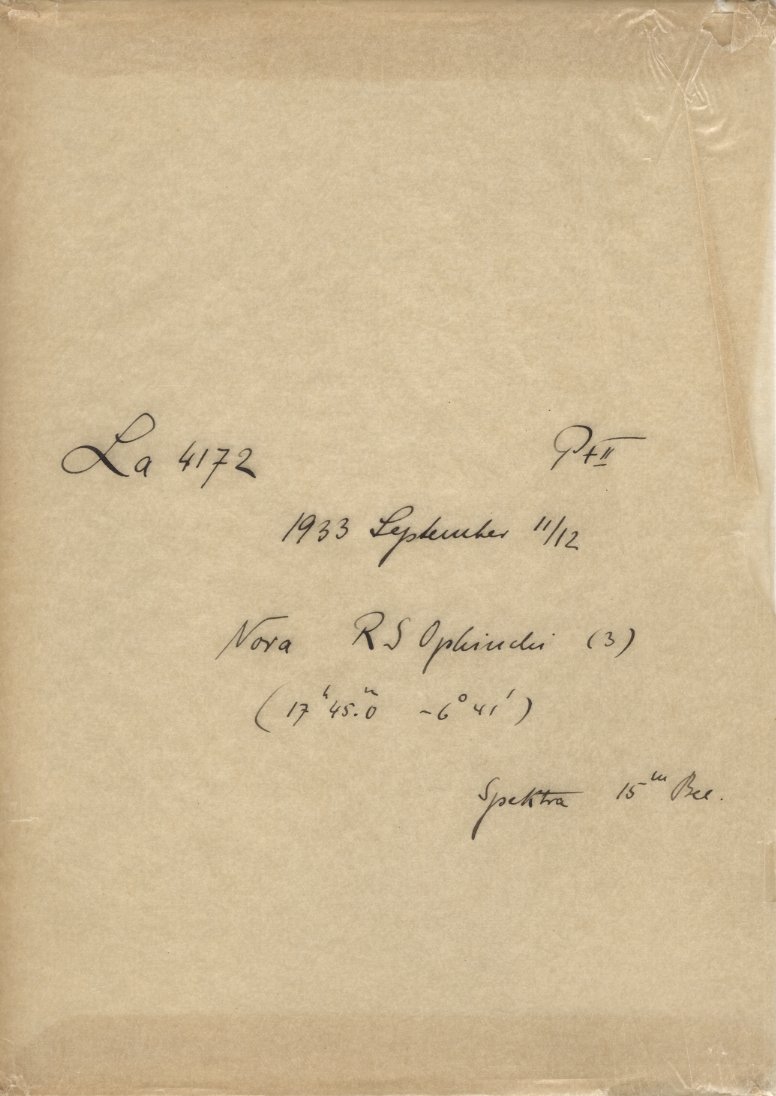 La 4172 P+II
1933 September 11/12
Nova RS Ophiuchi (3)
(17ʰ 45.ᵐ0 -6° 41')
Spektra 15ᵐ Bel.